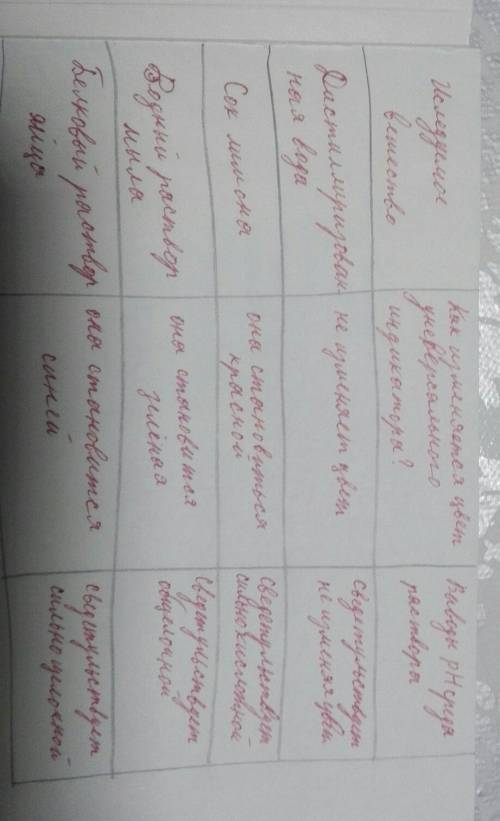 Иследуемое
вещество
Как изменяется цвет
универсального
индикатора?
Выводы pH среда
раствора
Дистиллизирован-
ная вода
не изменяет цвет
Свидетульствует
не изменяя цвет
Сок лимона
она становиться
красной
Сведетельствует
сильнокислотной
Водный раствор
мыла
она становится
зелёная
Сведетульствует
Белковый раствор
яйца
она становится
синей
сведетульствует
сильнощелочной